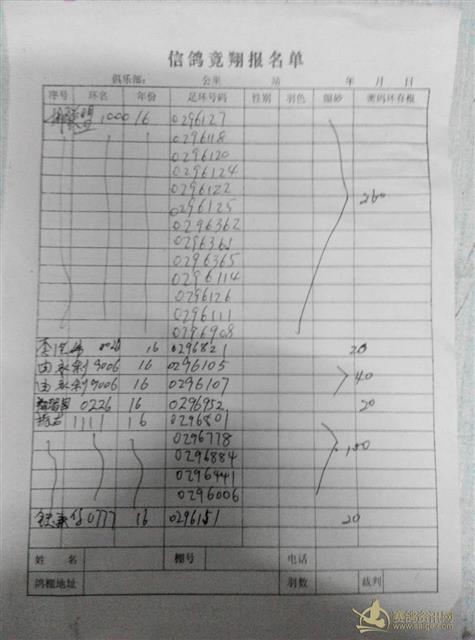 信鸽竞翔报名单
俱乐部: 公里 站 年 月 日
序号 环名 年份 足环号码 性别 羽色 眼砂 密码环存根
1000 16 0296127
0296118
0296120
0296124
0296122
0296125
0296362
0296361
0296365
0296114
0296126
0296111
0296908
260
李 0026 16 0296821 20
由永利 9006 16 0296105
由永利 9006 16 0296107
40
0226 16 0296952 20
1111 16 0296801
0296778
0296884
0296441
0296006
100
0777 16 0296151 20
姓名 棚号 电话
鸽棚地址 羽数 裁判
赛鸽资讯网
www.saige.com